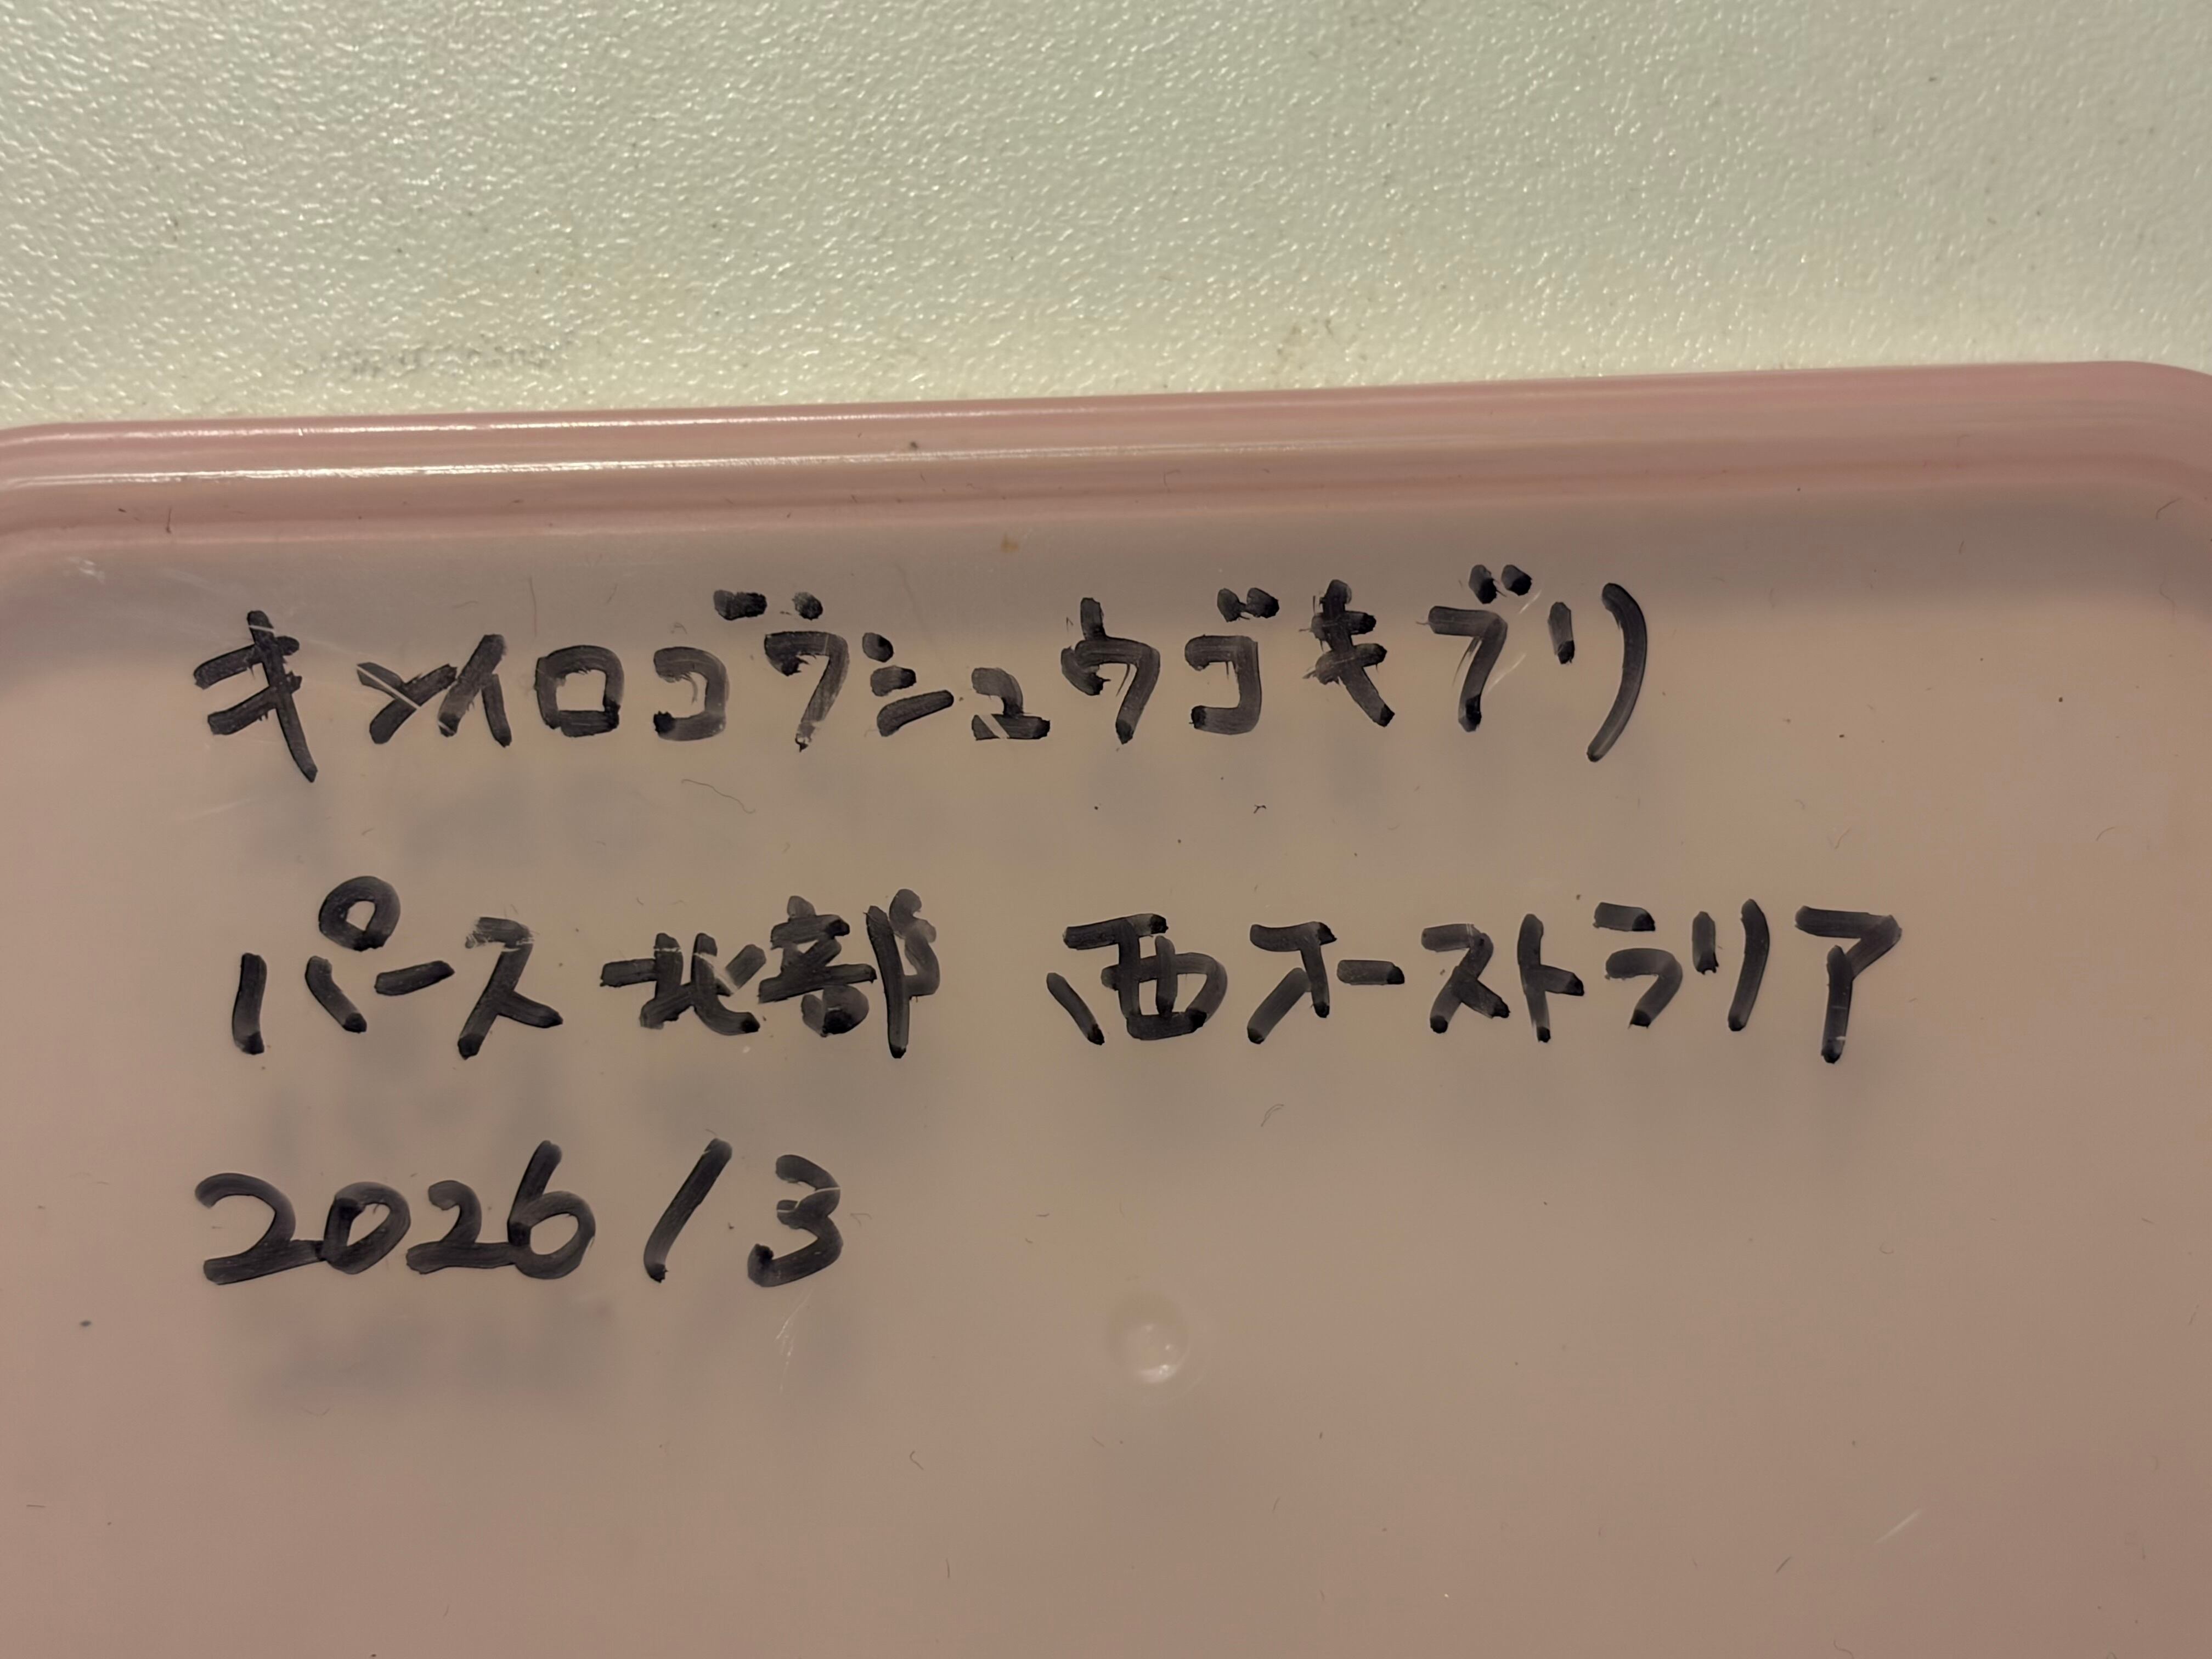 キンイロゴウシュウゴキブリ
パース北部 西オーストラリア
2026/3